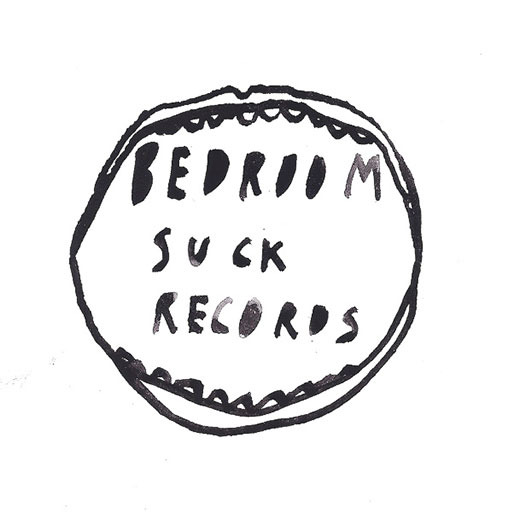 BEDROOM
SUCK
RECORDS